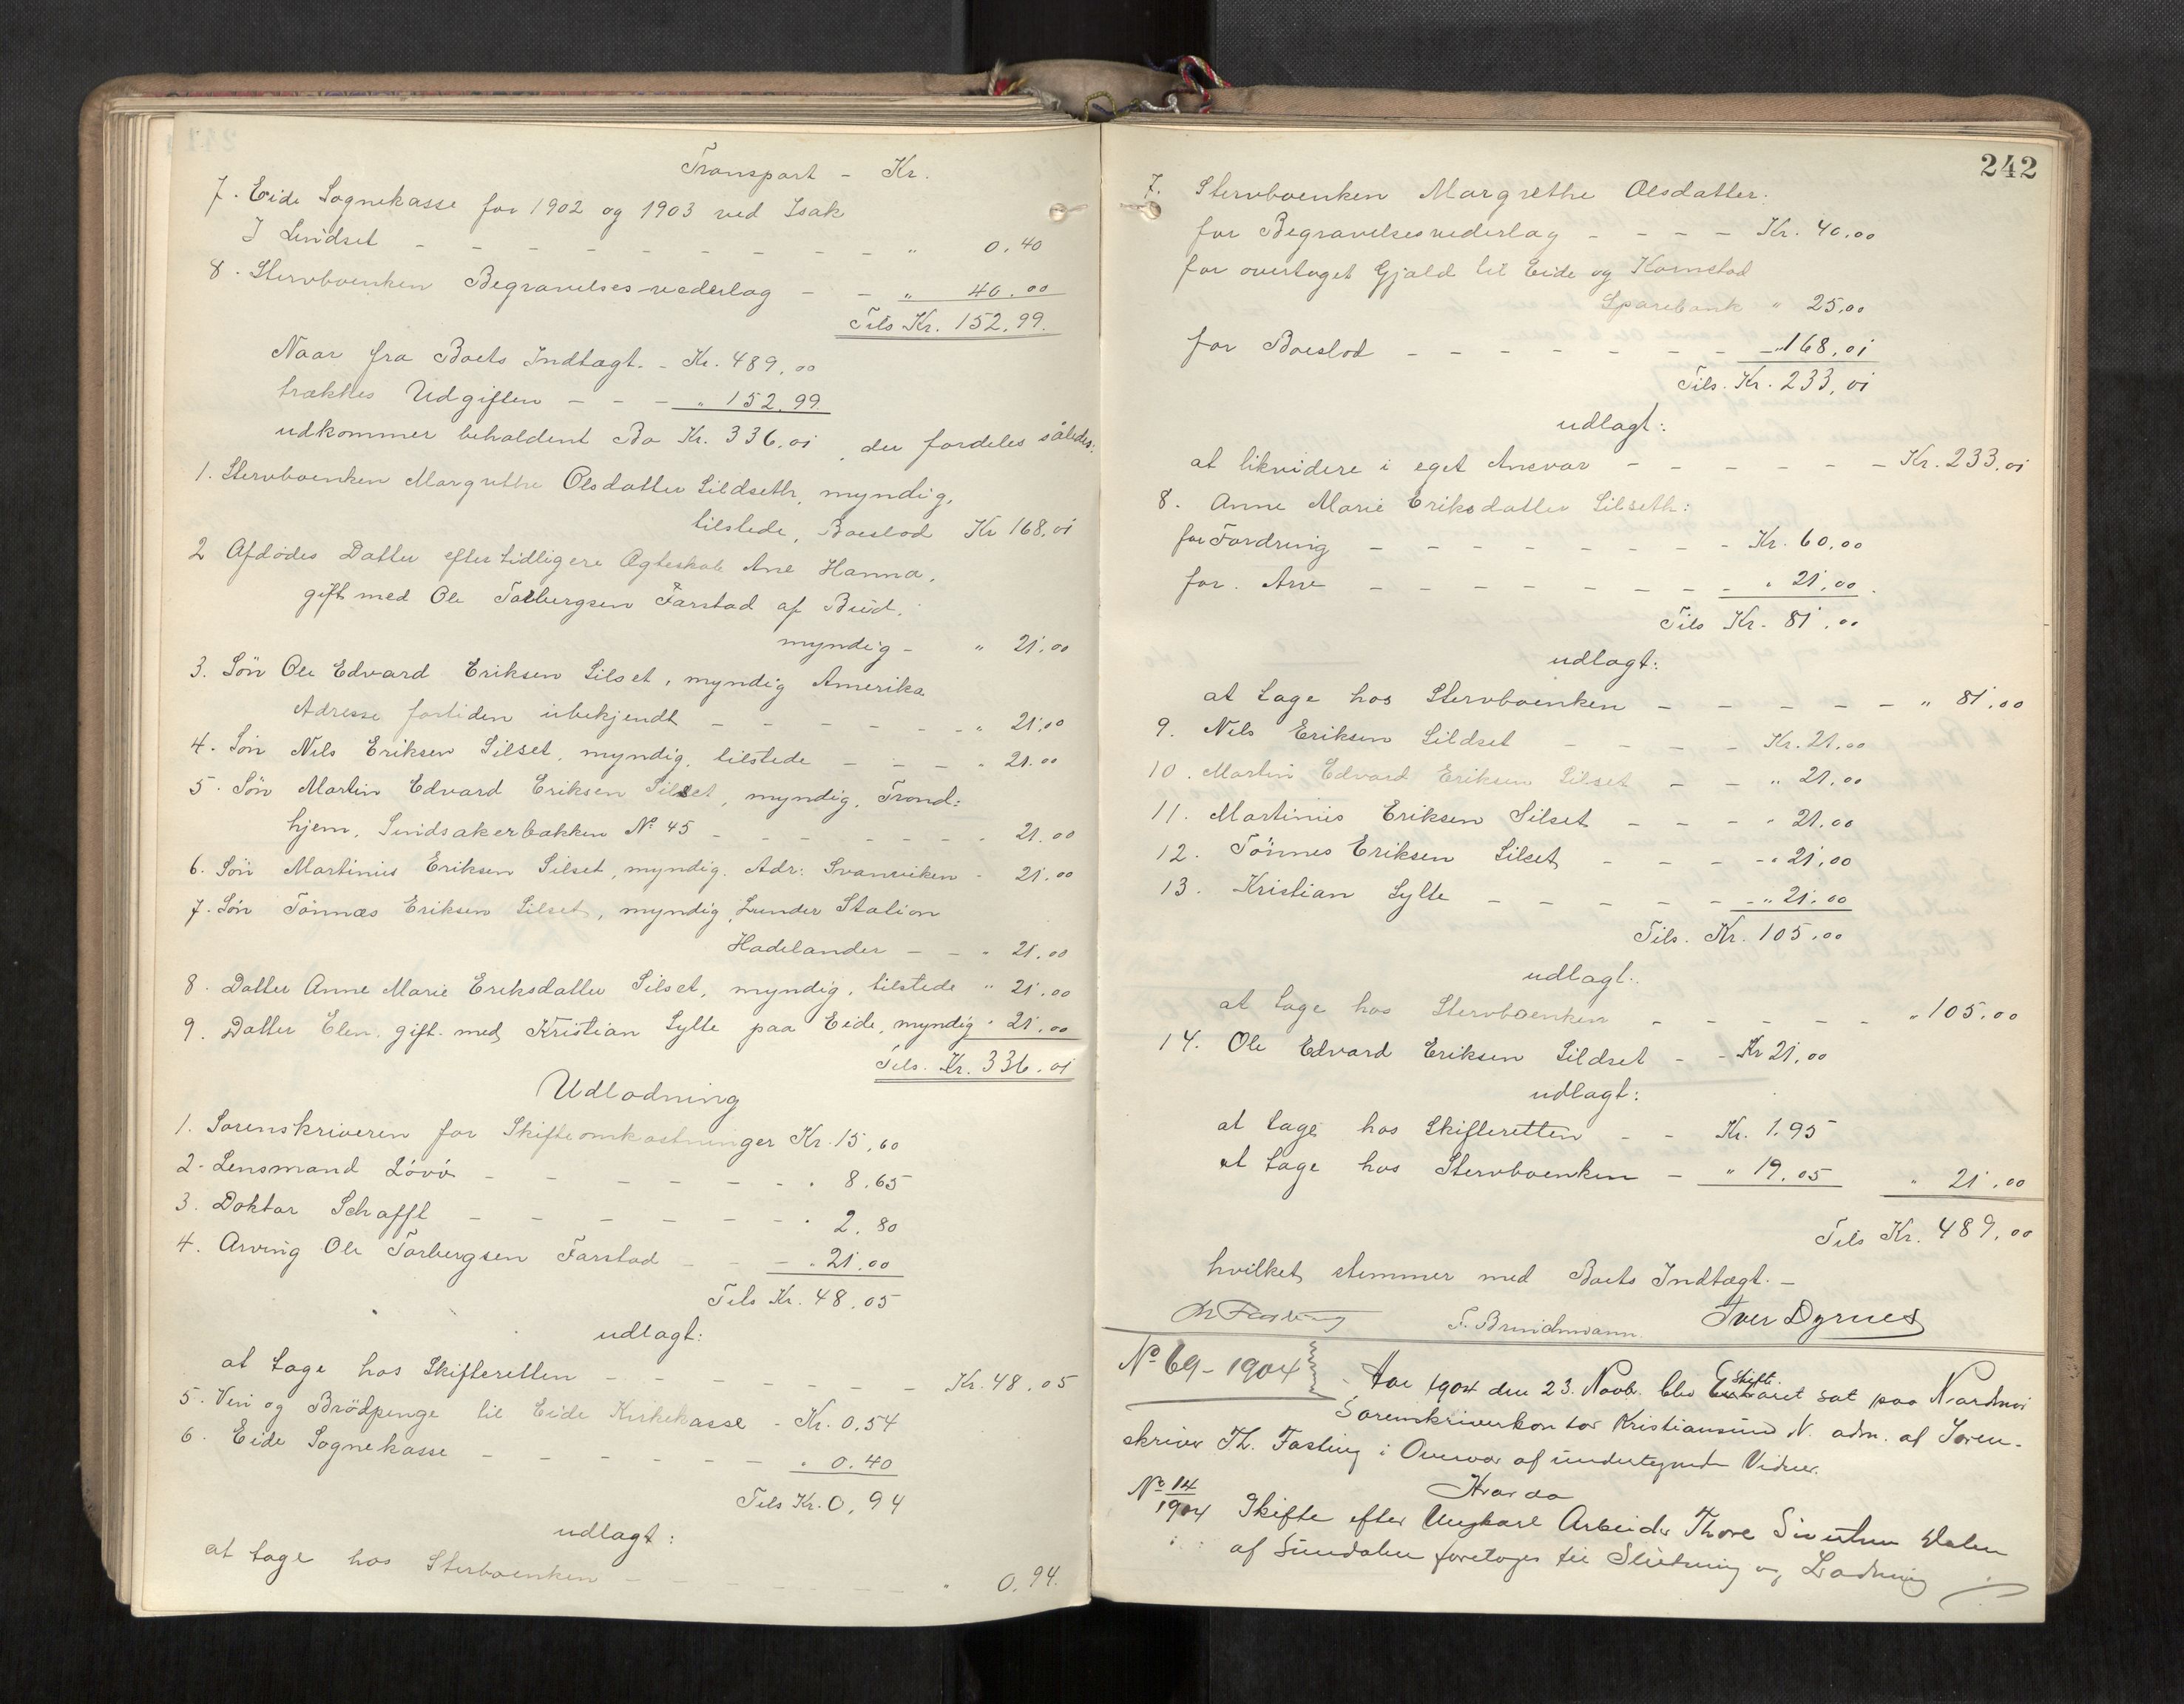 Transport - Kr.
7. Eide Sognekasse for 1902 og 1903 ved Isak
J Lindset - - - - - - - - " 0.40
8. Stervboenken Begravelsesvederlag - - " 40.00
Tils Kr. 152.99.
Naar fra Boets Indtægt. - Kr. 489.00
trækkes Udgiften - - - " 152.99
udkommer beholdent Bo Kr. 336.01, der fordeles således:
1. Stervboenken Margrethe Olsdatter Sildseth, myndig,
tilstede, Boeslod Kr 168.01
2 Afdødes Datter efter tidligere Ægteskab Ane Hanna,
gift med Ole Torbergsen Farstad af Bud.
myndig - " 21.00
3. Søn Ole Edvard Eriksen Silset, myndig Amerika
Adresse fortiden ubekjendt - - - - - " 21.00
4. Søn Nils Eriksen Silset, myndig, tilstede - - - " 21.00
5. Søn Martin Edvard Eriksen Silset, myndig, Trond:
hjem, Sindsakerbakken No 45 - - - - - - - 21.00
6. Søn Martinius Eriksen Silset, myndig. Adr: Svanviken - 21.00
7. Søn Tønnæs Eriksen Silset, myndig, Lunder Station
Hadelander - - " 21.00
8. Datter Anne Marie Eriksdatter Silset, myndig, tilstede " 21.00
9. Datter Elen, gift med Kristian Sylte paa Eide, myndig " 21.00
Tils. Kr. 336.01
Udlodning
1. Sorenskriveren for Skifteomkostninger Kr. 15.60
2. Lensmand Løvø - - - - - - - " 8.65
3. Doktor Schaffl - - - - - - - " 2.80
4. Arving Ole Torbergsen Farstad - - - " 21.00
Tils Kr. 48.05
udlagt:
at tage hos Skifteretten - - - - - - - Kr. 48.05
5. Vin og Brødpenge til Eide Kirkekasse - Kr. 0.54
6. Eide Sognekasse - - - - - - " 0.40
Tils Kr. 0,94
udlagt:
at tage hos Sterboenken - - - - - - - " 0.94.
242
7. Stervboenken Margrethe Olsdatter:
for Begravelsesvederlag - - - - Kr. 40.00
for overtaget Gjæld til Eide og Kornstad
Sparebank " 25.00
for Boeslod - - - - - - - - " 168.01
Tils. Kr. 233.01
udlagt:
at likvidere i eget Ansvar - - - - - - Kr. 233.01
8. Anne Marie Eriksdatter Silseth:
for Fordring - - - - - - - - Kr. 60.00
for. Arv - - - - - - - - " 21.00.
Tils Kr. 81.00
udlagt:
at tage hos Stervboenken - - - - - " 81.00
9. Nils Eriksen Sildset - - - - Kr. 21.00
10. Martin Edvard Eriksen Silset - - " 21.00
11. Martinius Eriksen Silset - - - " 21.00
12. Tönnes Eriksen Silset - - - - " 21.00
13. Kristian Sylte - - - - - - " 21.00
Tils. Kr. 105.00
udlagt:
at tage hos Stervboenken - - - - - " 105.00
14. Ole Edvard Eriksen Sildset - - Kr 21.00
udlagt:
at tage hos Skifteretten - - Kr. 1.95
at tage hos Stervboenken - " 19.05 " 21.00
Tils Kr. 489.00
hvilket stemmer med Boets Indtægt. -
Th Fasting F. Brinchmann Iver Dyrnes
No 69 - 1904 Aar 1904 den 23. Novb. blev Skifteret sat paa Nordmør
Sorenskriverkontor Kristiansund N. adm. af Soren-
skriver Th. Fasting i Overvær af undertegnede Vidner.
Hvorda
No 14/1904 Skifte efter Ungkarl Arbeider Thore Sivertsen Dalen
af Sundalen foretages til Slutning og Lodning